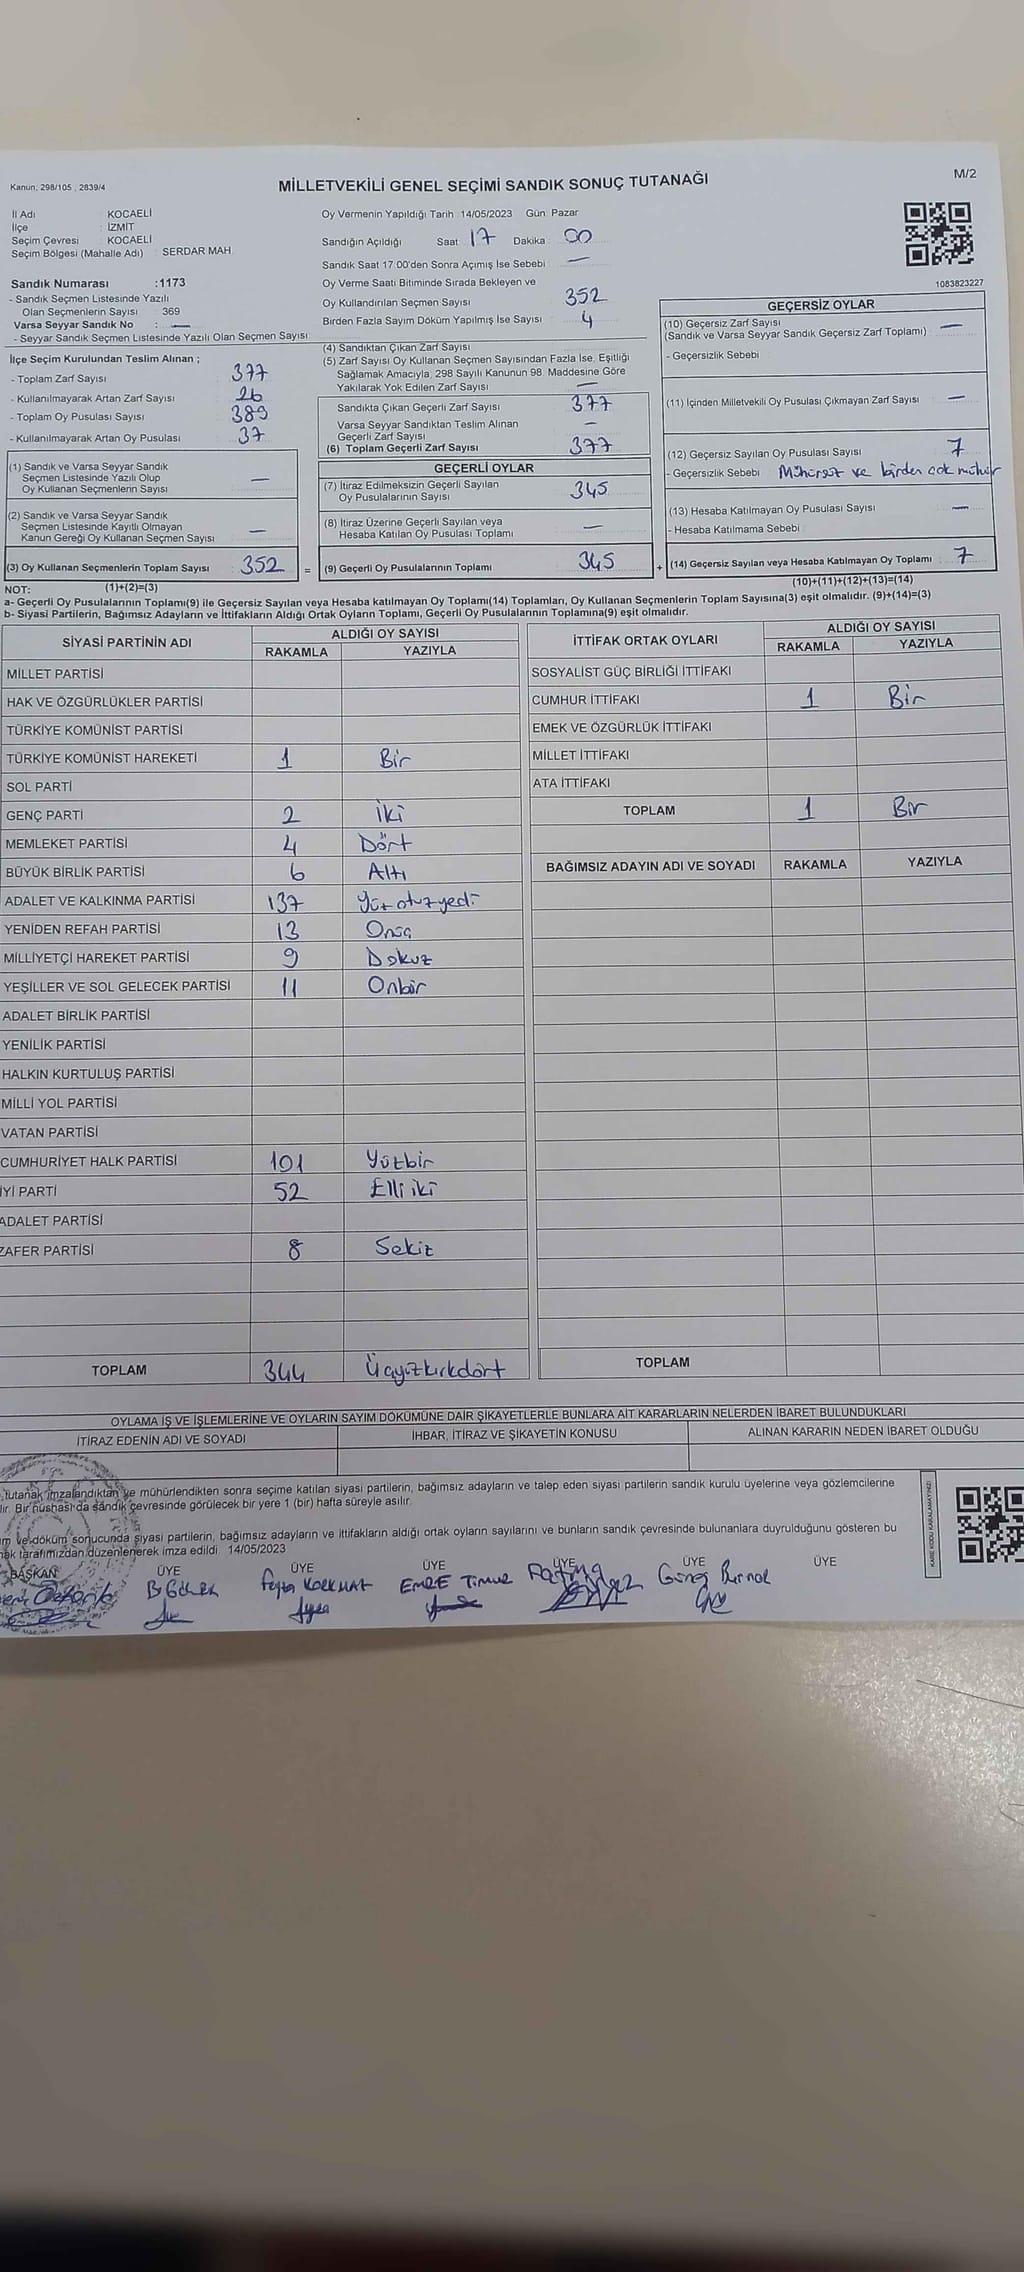 Kanun, 298/105 , 2839/4
MİLLETVEKİLİ GENEL SEÇİMİ SANDIK SONUÇ TUTANAĞI
M/2
İl Adı : KOCAELİ
İlçe : İZMİT
Seçim Çevresi : KOCAELİ
Seçim Bölgesi (Mahalle Adı) : SERDAR MAH.
Sandık Numarası :1173
- Sandık Seçmen Listesinde Yazılı
Olan Seçmenlerin Sayısı : 369
Varsa Seyyar Sandık No : —
- Seyyar Sandık Seçmen Listesinde Yazılı Olan Seçmen Sayısı:
Oy Vermenin Yapıldığı Tarih : 14/05/2023 Gün: Pazar
Sandığın Açıldığı Saat 17 Dakika : 00
Sandık Saat 17:00'den Sonra Açımış İse Sebebi : —
Oy Verme Saati Bitiminde Sırada Bekleyen ve
Oy Kullandırılan Seçmen Sayısı 352
Birden Fazla Sayım Döküm Yapılmış İse Sayısı : 4
1083823227
İlçe Seçim Kurulundan Teslim Alınan ;
- Toplam Zarf Sayısı : 377
- Kullanılmayarak Artan Zarf Sayısı : 26
- Toplam Oy Pusulası Sayısı : 389
- Kullanılmayarak Artan Oy Pusulası : 37
(1) Sandık ve Varsa Seyyar Sandık
Seçmen Listesinde Yazılı Olup
Oy Kullanan Seçmenlerin Sayısı : —
(2) Sandık ve Varsa Seyyar Sandık
Seçmen Listesinde Kayıtlı Olmayan
Kanun Gereği Oy Kullanan Seçmen Sayısı : —
(3) Oy Kullanan Seçmenlerin Toplam Sayısı : 352 =
(1)+(2)=(3)
(4) Sandıktan Çıkan Zarf Sayısı
(5) Zarf Sayısı Oy Kullanan Seçmen Sayısından Fazla İse, Eşitliği
Sağlamak Amacıyla, 298 Sayılı Kanunun 98. Maddesine Göre
Yakılarak Yok Edilen Zarf Sayısı —
Sandıkta Çıkan Geçerli Zarf Sayısı : 377
Varsa Seyyar Sandıktan Teslim Alınan
Geçerli Zarf Sayısı : —
(6) Toplam Geçerli Zarf Sayısı : 377
GEÇERLİ OYLAR
(7) İtiraz Edilmeksizin Geçerli Sayılan
Oy Pusulalarının Sayısı : 345
(8) İtiraz Üzerine Geçerli Sayılan veya
Hesaba Katılan Oy Pusulası Toplamı : —
(9) Geçerli Oy Pusulalarının Toplamı : 345 +
GEÇERSİZ OYLAR
(10) Geçersiz Zarf Sayısı
(Sandık ve Varsa Seyyar Sandık Geçersiz Zarf Toplamı) : —
- Geçersizlik Sebebi :
(11) İçinden Milletvekili Oy Pusulası Çıkmayan Zarf Sayısı : —
(12) Geçersiz Sayılan Oy Pusulası Sayısı : 7
- Geçersizlik Sebebi : Mühürsüz ve birden çok mühür
(13) Hesaba Katılmayan Oy Pusulası Sayısı : —
- Hesaba Katılmama Sebebi :
(14) Geçersiz Sayılan veya Hesaba Katılmayan Oy Toplamı : 7
(10)+(11)+(12)+(13)=(14)
NOT:
a- Geçerli Oy Pusulalarının Toplamı(9) ile Geçersiz Sayılan veya Hesaba katılmayan Oy Toplamı(14) Toplamları, Oy Kullanan Seçmenlerin Toplam Sayısına(3) eşit olmalıdır. (9)+(14)=(3)
b- Siyasi Partilerin, Bağımsız Adayların ve İttifakların Aldığı Ortak Oyların Toplamı, Geçerli Oy Pusulalarının Toplamına(9) eşit olmalıdır.
SİYASİ PARTİNİN ADI
ALDIĞI OY SAYISI
RAKAMLA YAZIYLA
MİLLET PARTİSİ
HAK VE ÖZGÜRLÜKLER PARTİSİ
TÜRKİYE KOMÜNİST PARTİSİ
TÜRKİYE KOMÜNİST HAREKETİ 1 Bir
SOL PARTİ
GENÇ PARTİ 2 İki
MEMLEKET PARTİSİ 4 Dört
BÜYÜK BİRLİK PARTİSİ 6 Altı
ADALET VE KALKINMA PARTİSİ 137 Yüzotuzyedi
YENİDEN REFAH PARTİSİ 13
MİLLİYETÇİ HAREKET PARTİSİ 9 Dokuz
YEŞİLLER VE SOL GELECEK PARTİSİ 11 Onbir
ADALET BİRLİK PARTİSİ
YENİLİK PARTİSİ
HALKIN KURTULUŞ PARTİSİ
MİLLİ YOL PARTİSİ
VATAN PARTİSİ
CUMHURİYET HALK PARTİSİ 101 Yüzbir
İYİ PARTİ 52 Elli iki
ADALET PARTİSİ
ZAFER PARTİSİ 8 Sekiz
TOPLAM 344 Üçyüzkırkdört
İTTİFAK ORTAK OYLARI
ALDIĞI OY SAYISI
RAKAMLA YAZIYLA
SOSYALİST GÜÇ BİRLİĞİ İTTİFAKI
CUMHUR İTTİFAKI 1 Bir
EMEK VE ÖZGÜRLÜK İTTİFAKI
MİLLET İTTİFAKI
ATA İTTİFAKI
TOPLAM 1 Bir
BAĞIMSIZ ADAYIN ADI VE SOYADI RAKAMLA YAZIYLA
TOPLAM
OYLAMA İŞ VE İŞLEMLERİNE VE OYLARIN SAYIM DÖKÜMÜNE DAİR ŞİKAYETLERLE BUNLARA AİT KARARLARIN NELERDEN İBARET BULUNDUKLARI
İTİRAZ EDENİN ADI VE SOYADI İHBAR, İTİRAZ VE ŞİKAYETİN KONUSU ALINAN KARARIN NEDEN İBARET OLDUĞU
tutanak imzalandıktan ve mühürlendikten sonra seçime katılan siyasi partilerin, bağımsız adayların ve talep eden siyasi partilerin sandık kurulu üyelerine veya gözlemcilerine
lir. Bir nüshası da sandık çevresinde görülecek bir yere 1 (bir) hafta süreyle asılır.
m ve döküm sonucunda siyasi partilerin, bağımsız adayların ve ittifakların aldığı ortak oyların sayılarını ve bunların sandık çevresinde bulunanlara duyrulduğunu gösteren bu
nak tarafımızdan düzenlenerek imza edildi. 14/05/2023
KARE KODU KARALAMAYINIZ!
BAŞKAN ÜYE ÜYE ÜYE ÜYE ÜYE ÜYE
EMRE TİMUR